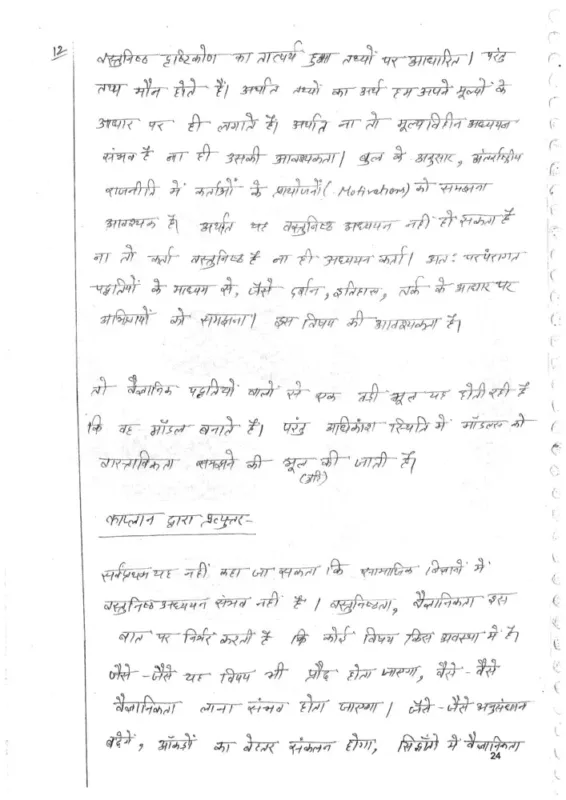 12
वस्तुनिष्ठ दृष्टिकोण का तात्पर्य हुआ तथ्यों पर आधारित। परंतु
तथ्य मौन होते हैं। अर्थात तथ्यों का अर्थ हम अपने मूल्यों के
आधार पर ही लगाते हैं। अर्थात ना तो मूल्यविहीन अध्ययन
संभव है ना ही उसकी आवश्यकता। बुल के अनुसार, अंतर्राष्ट्रीय
राजनीति में कर्ताओं के प्रायोजनों (Motivations) को समझना
आवश्यक है। अर्थात यह वस्तुनिष्ठ अध्ययन नहीं हो सकता है
ना तो कर्ता वस्तुनिष्ठ है ना ही अध्ययन कर्ता। अतः परंपरागत
पद्धतियों के माध्यम से, जैसे दर्शन, इतिहास, तर्क के आधार पर
अभिप्रायों को समझना। इस विषय की आवश्यकता है।
तो वैज्ञानिक पद्धतियों वालों से एक बड़ी भूल यह होती रही है
कि वह मॉडल बनाते हैं। परंतु अधिकांश स्थिति में मॉडल्स को
वास्तविकता समझने की भूल की जाती है।
काप्लान द्वारा प्रत्युत्तर-
सर्वप्रथम यह नहीं कहा जा सकता कि सामाजिक विज्ञानों में
वस्तुनिष्ठ अध्ययन संभव नहीं है। वस्तुनिष्ठता, वैज्ञानिकता इस
बात पर निर्भर करती है कि कोई विषय किस अवस्था में है।
जैसे-जैसे यह विषय भी प्रौढ़ होता जाएगा, वैसे-वैसे
वैज्ञानिकता लाना संभव होता जाएगा। जैसे-जैसे अनुसंधान
बढ़ेंगे, आँकड़ों का बेहतर संकलन होगा, सिद्धाँतों में वैज्ञानिकता
24